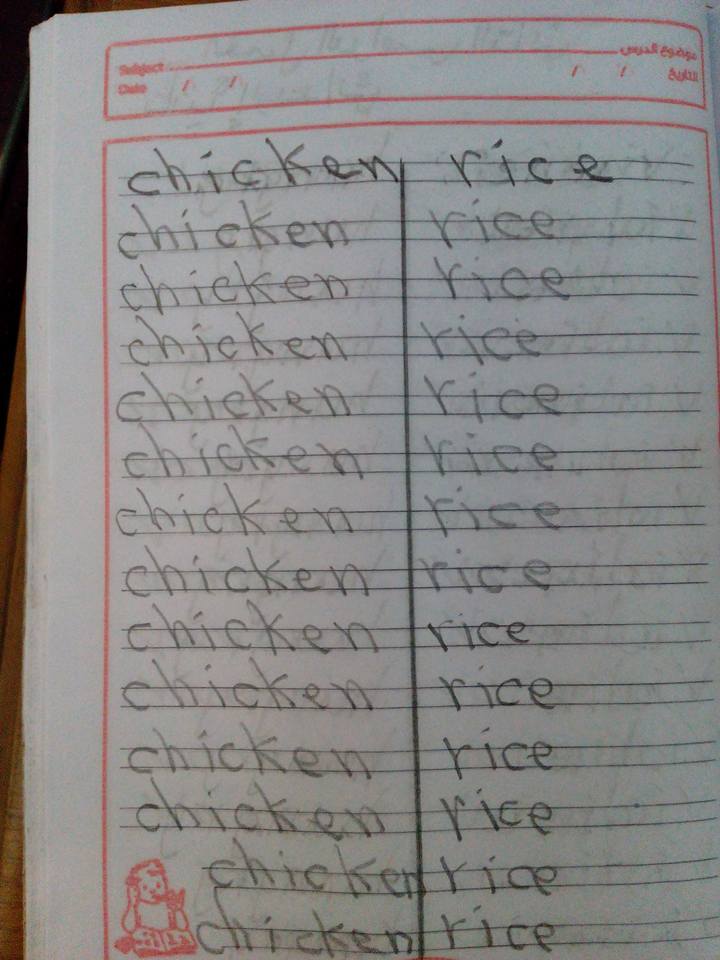 Subject موضوع الدرس
Date / / / / التاريخ
chicken rice
chicken rice
chicken rice
chicken rice
chicken rice
chicken rice
chicken rice
chicken rice
chicken rice
chicken rice
chicken rice
chicken rice
chicken rice
chicken rice